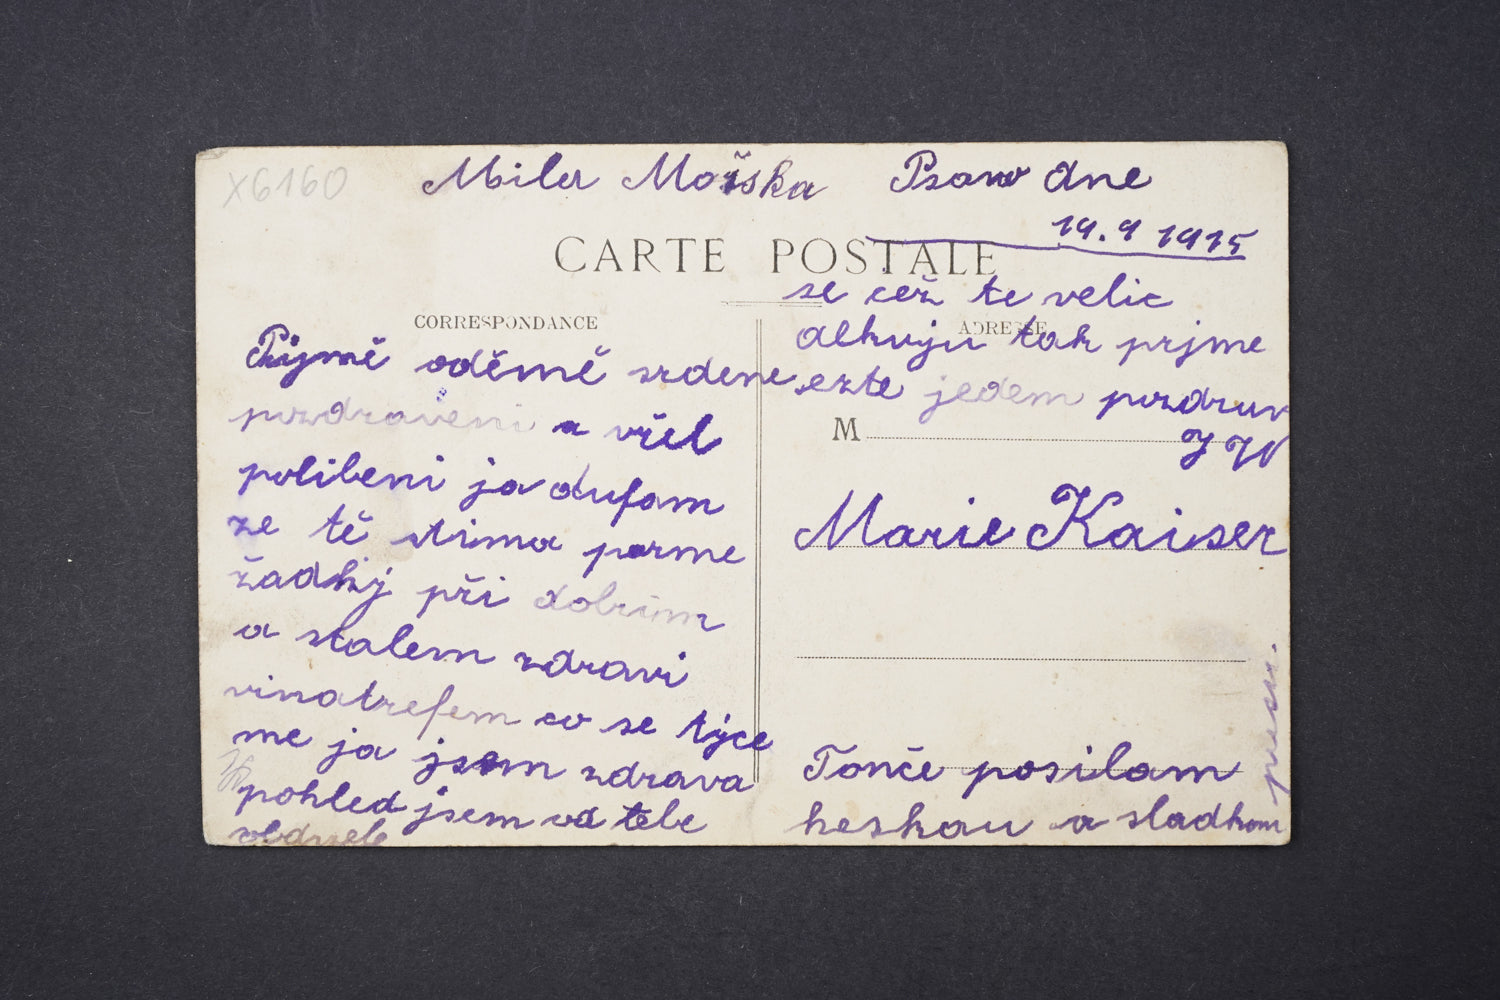 X6160
Mila Mařska Psano dne
19. 9 1915
CARTE POSTALE
CORRESPONDANCE
Přijmě oděmě srdene
pozdraveni a vřel
polibeni ja dufam
ze tě stima parme
žadkj při dobrim
a stalem zdravi
vinatrefem co se týce
me ja jsem zdrava
pohled jsem od tebe
obdrzela
se cež te velic
ADRESSE
dekuju tak prjme
ezte jedem pozdrav
M
Marie Kaiser
Tonče posilam
heskou a sladkou
pusu.